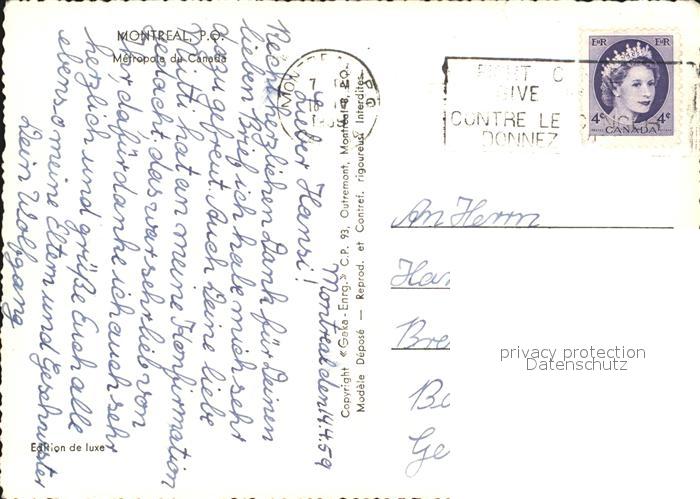 MONTREAL, P.Q.
Métropole du Canada
Montreal den 14.4.59
Lieber Hansi!
Recht herzlichen Dank für Deinen
lieben Brief ich habe mich sehr
dazu gefreut. Auch Deine liebe
Mutti hat an meine Konfirmation
gedacht, das war sehr lieb von
Ihr dafür danke ich auch sehr
herzlich und grüße Euch alle
ebenso meine Eltern und Geschwister
Dein Wolfgang
Edition de luxe
Copyright «Geka-Enrg.» C.P. 93, Outremont, Montréal 8, P.Q.
Modèle Déposé — Reprod. et Contref. rigoureus! Interdites.
MON
P Q
7
FIGHT C
GIVE
CONTRE LE CANCER
DONNEZ
EIIR EIIR
4c 4c
POSTES POSTAGE
CANADA
An Herrn
Han
Bre
privacy protection
Datenschutz
Ge